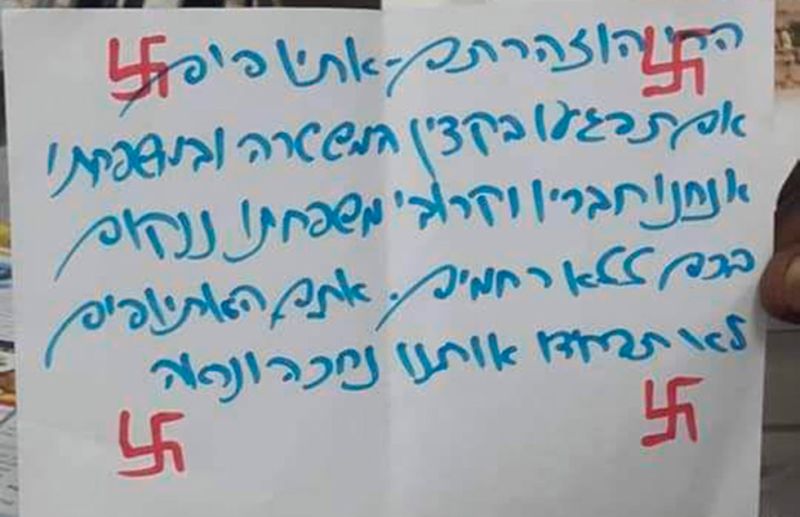 הוזהרתם - אתיופים
אם תפגעו בקצין המשטרה ובמשפחתו
אנחנו חבריו וקרובי משפחתו ננקום
בכם ללא רחמים. אתם האתיופים
לא תפחידו אותנו נחכה ונראה